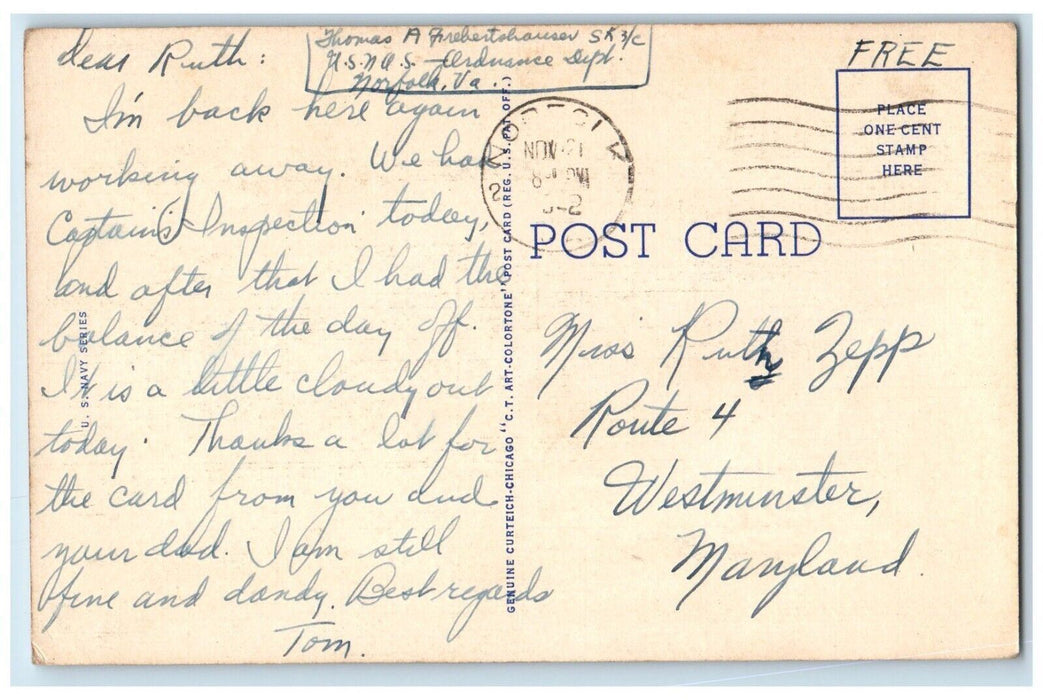 Dear Ruth:
I'm back here again
working away. We had
Captain's Inspection today,
and after that I had the
balance of the day off.
It is a little cloudy out
today. Thanks a lot for
the card from you and
your dad. I am still
fine and dandy. Best regards
Tom.
U. S. NAVY SERIES
Thomas A SK 3/c
U.S.N.A.S. - Ordnance Dept.
Norfolk, Va.
GENUINE CURTEICH-CHICAGO "C.T. ART-COLORTONE" POST CARD (REG. U.S. PAT. OFF.)
NOV 21
FREE
PLACE
ONE CENT
STAMP
HERE
POST CARD
Miss Ruth Zepp
Route 4
Westminster,
Maryland.